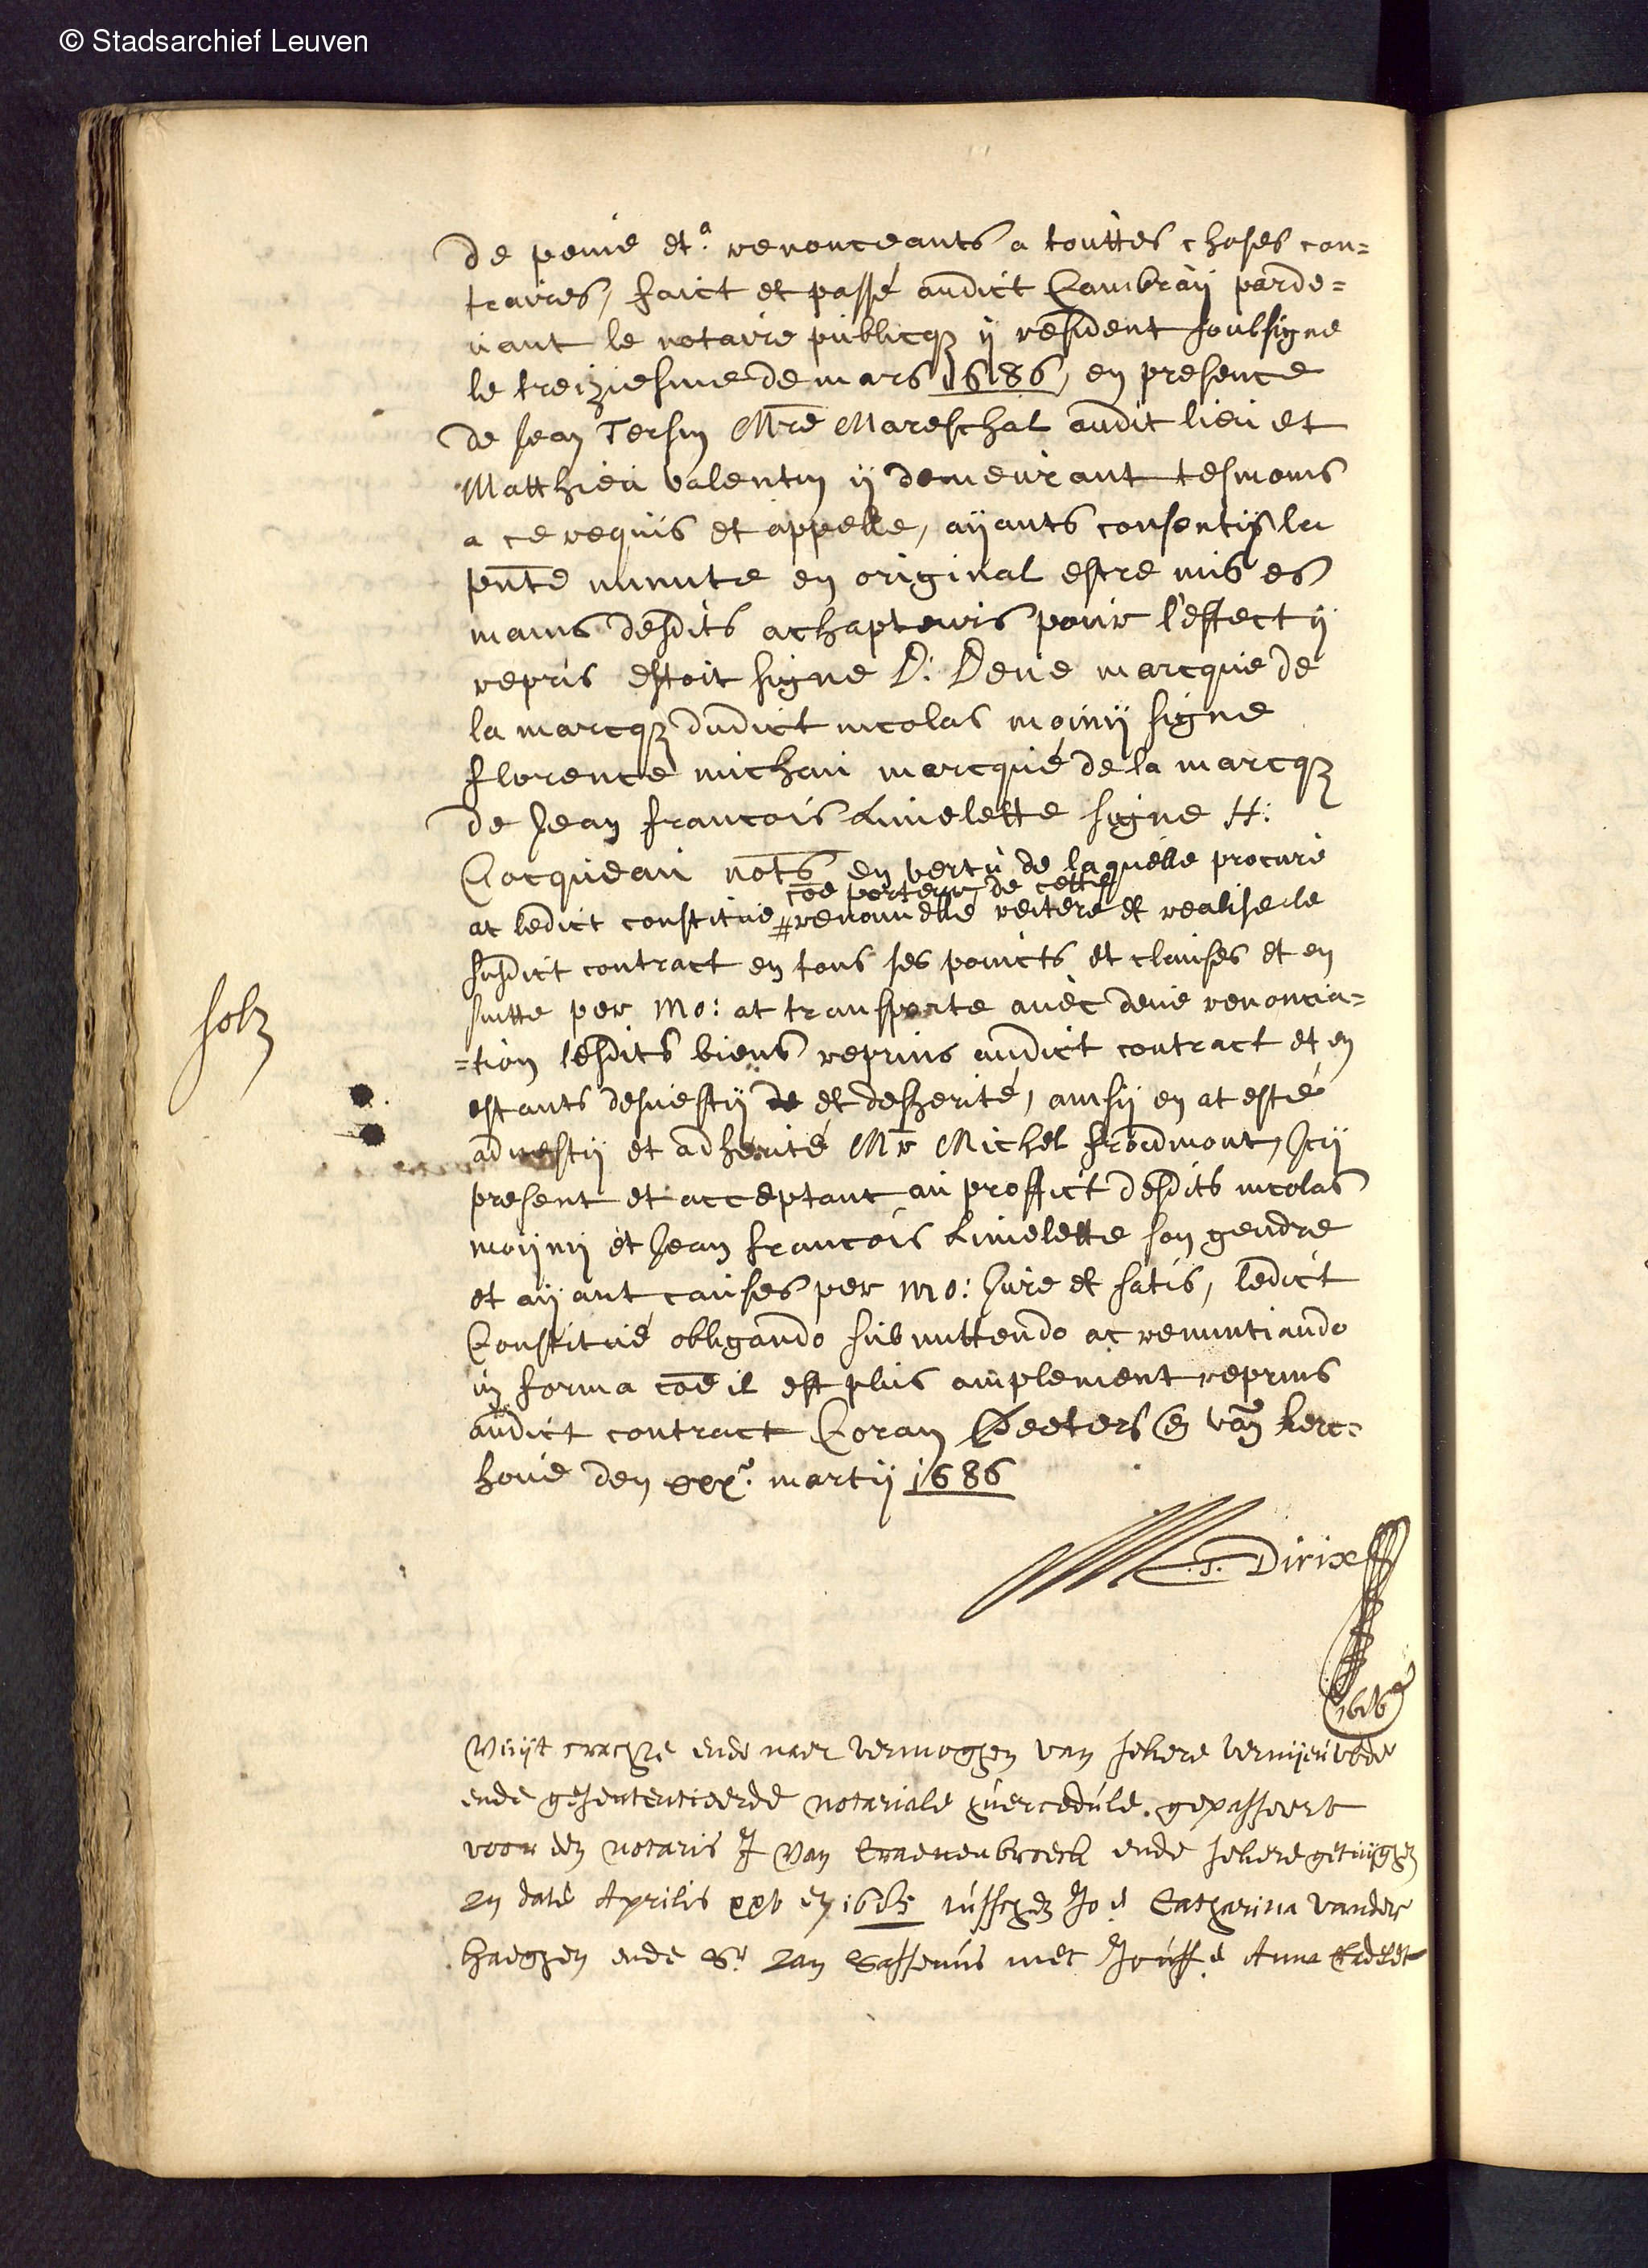 © Stadsarchief Leuven
de peine et.a renonceants a touttes choses con=
traires, faict et passé audict Cambraÿ parde=
uant le notaire publicq ÿ resident soubsigne
le treiziesme de mars 1686, en presence
de Jean Tersin Mre Mareschal audit lieu et
Matthieu Valentin ÿ demeurant tesmoins
a ce requis et appelle, aÿants consentis la
pnte minute en original estre mis es
mains desdits achapteurs pour l'effect ÿ
repris estoit signe D: Deue marcquie de
la marcq dudict nicolas moinÿ signe
florence michau marcquié de la marcq
de Jean francois Limelette signe H:
Cocqueau nots en vertu de laquelle procure
coe porteur de cette
at ledict constitue # renouuelle reitere et realise le
susdict contract en tous ses poincts et clauses et en
suitte per mo: at transporte auec deue renoncia=
=tion lesdits biens reprins audict contract et en
solz
estants desuestÿ de et desherité, ainsÿ en at esté
aduestÿ et adherité Mr Michel froidmont, Jcÿ
present et acceptant au proffict desdits nicolas
moÿnÿ et Jean francois Limelette son gendre
et aÿant causes per mo: Jure et satis, ledict
Constitué obligando submittendo ac renuntiando
in forma coe il est plus amplement reprins
audict contract Coram Peeters et van kerc=
houe den xxx.a martÿ 1686
J. Dirix
1686
Vuÿt crachte ende naer vermoghen van sekere vernieuwde
ende gesententieerde notariale cedule gepasseert
voor den notaris J Van Craenenbroeck ende sekere getuÿghen
in date Aprilis xxv en 1685 tusschen Jo.e Catharina vander
haeghen ende Sr. Jan Sassenus met Jouff.e Anna